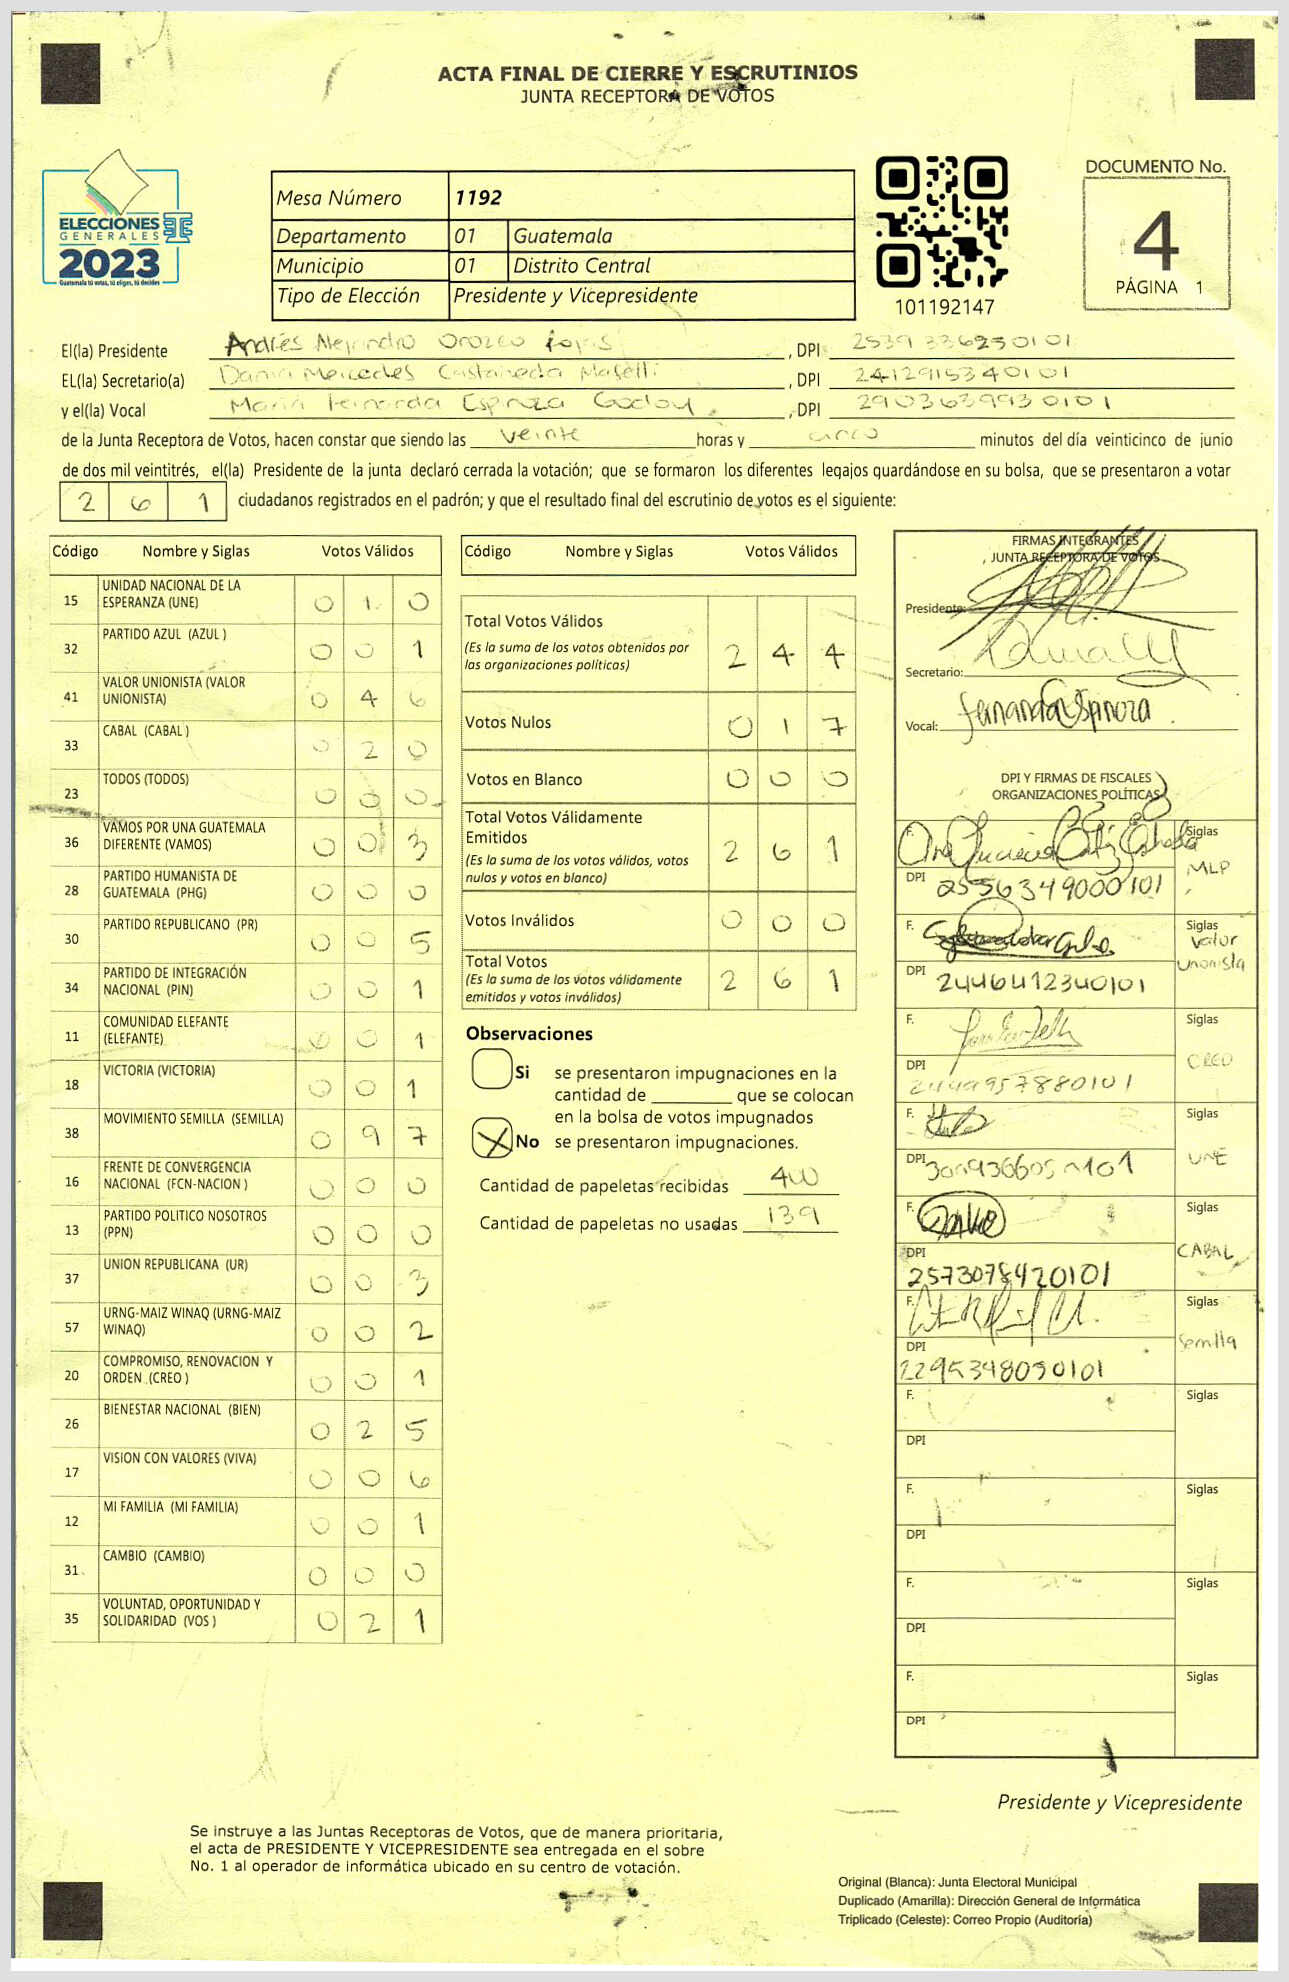 ACTA FINAL DE CIERRE Y ESCRUTINIOS
JUNTA RECEPTORA DE VOTOS
ELECCIONES
GENERALES
2023
Guatemala tú votas, tú eliges, tú decides
Mesa Número 1192
Departamento 01 Guatemala
Municipio 01 Distrito Central
Tipo de Elección Presidente y Vicepresidente
101192147
DOCUMENTO No.
4
PÁGINA 1
El(la) Presidente Andrés Alejandro Orozco , DPI 2539336250101
EL(la) Secretario(a) Dania Mercedes Castañeda Maselli , DPI 2412915340101
y el(la) Vocal María Fernanda Espinoza Godoy. , DPI 2903639930101
de la Junta Receptora de Votos, hacen constar que siendo las veinte horas y cinco minutos del día veinticinco de junio
de dos mil veintitrés, el(la) Presidente de la junta declaró cerrada la votación; que se formaron los diferentes legajos guardándose en su bolsa, que se presentaron a votar
2 6 1 ciudadanos registrados en el padrón; y que el resultado final del escrutinio de votos es el siguiente:
Código Nombre y Siglas Votos Válidos
15 UNIDAD NACIONAL DE LA ESPERANZA (UNE) 0 1 0
32 PARTIDO AZUL (AZUL ) 0 0 1
41 VALOR UNIONISTA (VALOR UNIONISTA) 0 4 6
33 CABAL (CABAL ) 0 2 0
23 TODOS (TODOS) 0 0 0
36 VAMOS POR UNA GUATEMALA DIFERENTE (VAMOS) 0 0 3
28 PARTIDO HUMANISTA DE GUATEMALA (PHG) 0 0 0
30 PARTIDO REPUBLICANO (PR) 0 0 5
34 PARTIDO DE INTEGRACIÓN NACIONAL (PIN) 0 0 1
11 COMUNIDAD ELEFANTE (ELEFANTE) 0 0 1
18 VICTORIA (VICTORIA) 0 0 1
38 MOVIMIENTO SEMILLA (SEMILLA) 0 9 7
16 FRENTE DE CONVERGENCIA NACIONAL (FCN-NACION ) 0 0 0
13 PARTIDO POLITICO NOSOTROS (PPN) 0 0 0
37 UNION REPUBLICANA (UR) 0 0 3
57 URNG-MAIZ WINAQ (URNG-MAIZ WINAQ) 0 0 2
20 COMPROMISO, RENOVACION Y ORDEN (CREO ) 0 0 1
26 BIENESTAR NACIONAL (BIEN) 0 2 5
17 VISION CON VALORES (VIVA) 0 0 6
12 MI FAMILIA (MI FAMILIA) 0 0 1
31 CAMBIO (CAMBIO) 0 0 0
35 VOLUNTAD, OPORTUNIDAD Y SOLIDARIDAD (VOS ) 0 2 1
Código Nombre y Siglas Votos Válidos
Total Votos Válidos 2 4 4
(Es la suma de los votos obtenidos por
las organizaciones políticas)
Votos Nulos 0 1 7
Votos en Blanco 0 0 0
Total Votos Válidamente
Emitidos 2 6 1
(Es la suma de los votos válidos, votos
nulos y votos en blanco)
Votos Inválidos 0 0 0
Total Votos 2 6 1
(Es la suma de los votos válidamente
emitidos y votos inválidos)
Observaciones
Si se presentaron impugnaciones en la
cantidad de ________ que se colocan
en la bolsa de votos impugnados
X No se presentaron impugnaciones.
Cantidad de papeletas recibidas 400
Cantidad de papeletas no usadas 139
FIRMAS INTEGRANTES
JUNTA RECEPTORA DE VOTOS
Presidente:
Secretario:
Vocal: Fernanda Espinoza
DPI Y FIRMAS DE FISCALES
ORGANIZACIONES POLÍTICAS
F. Siglas MLP
DPI 2556349000101
F. Siglas Valor Unionista
DPI 2446412340101
F. Siglas CREO
DPI 2449957880101
F. Siglas UNE
DPI
F. Siglas CABAL
DPI 2573078420101
F. Siglas Semilla
DPI 2295348050101
F. Siglas
DPI
F. Siglas
DPI
F. Siglas
DPI
F. Siglas
DPI
Presidente y Vicepresidente
Se instruye a las Juntas Receptoras de Votos, que de manera prioritaria,
el acta de PRESIDENTE Y VICEPRESIDENTE sea entregada en el sobre
No. 1 al operador de informática ubicado en su centro de votación.
Original (Blanca): Junta Electoral Municipal
Duplicado (Amarilla): Dirección General de Informática
Triplicado (Celeste): Correo Propio (Auditoría)